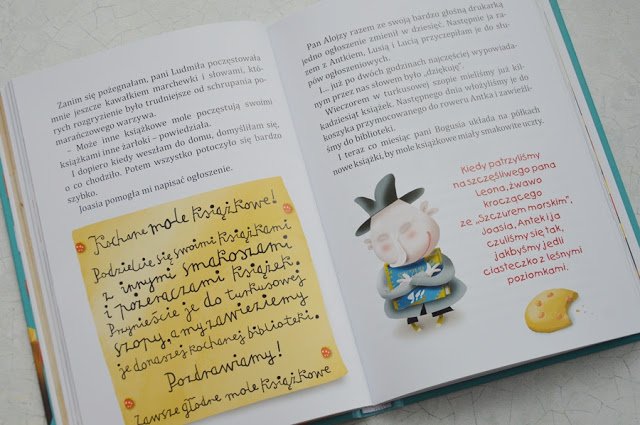 Zanim się pożegnałam, pani Ludmiła poczęstowała
mnie jeszcze kawałkiem marchewki i słowami, któ-
rych rozgryzienie było trudniejsze od schrupania po-
marańczowego warzywa.
– Może inne książkowe mole poczęstują swoimi
książkami inne żarłoki – powiedziała.
I dopiero kiedy weszłam do domu, domyśliłam się,
o co chodziło. Potem wszystko potoczyło się bardzo
szybko.
Joasia pomogła mi napisać ogłoszenie.
Kochane mole książkowe!
Podzielcie się swoimi książkami
z innymi smakoszami
i pożeraczami książek.
Przynieście je do turkusowej
szopy, a my zawieziemy
je do naszej kochanej biblioteki.
Pozdrawiamy!
Zawsze głodne mole książkowe
Pan Alojzy razem ze swoją bardzo głośną drukarką
jedno ogłoszenie zmienił w dziesięć. Następnie ja ra-
zem z Antkiem, Lusią i Lucią przyczepiłam je do słu-
pów ogłoszeniowych.
I... już po dwóch godzinach najczęściej wypowiada-
nym przez nas słowem było „dziękuję”.
Wieczorem w turkusowej szopie mieliśmy już kil-
kadziesiąt książek. Następnego dnia włożyliśmy je do
koszyka przymocowanego do roweru Antka i zawieźli-
śmy do biblioteki.
I teraz co miesiąc pani Bogusia układa na półkach
nowe książki, by mole książkowe miały smakowite uczty.
Kiedy patrzyliśmy
na szczęśliwego pana
Leona, żwawo
kroczącego
ze „Szczurem morskim”,
Joasia, Antek i ja
czuliśmy się tak,
jakbyśmy jedli
ciasteczko z leśnymi
poziomkami.